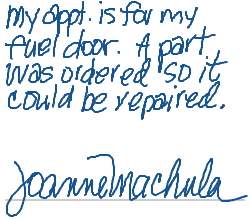 my appt. is for my
fuel door. A part
was ordered so it
could be repaired.
Joanne Machula